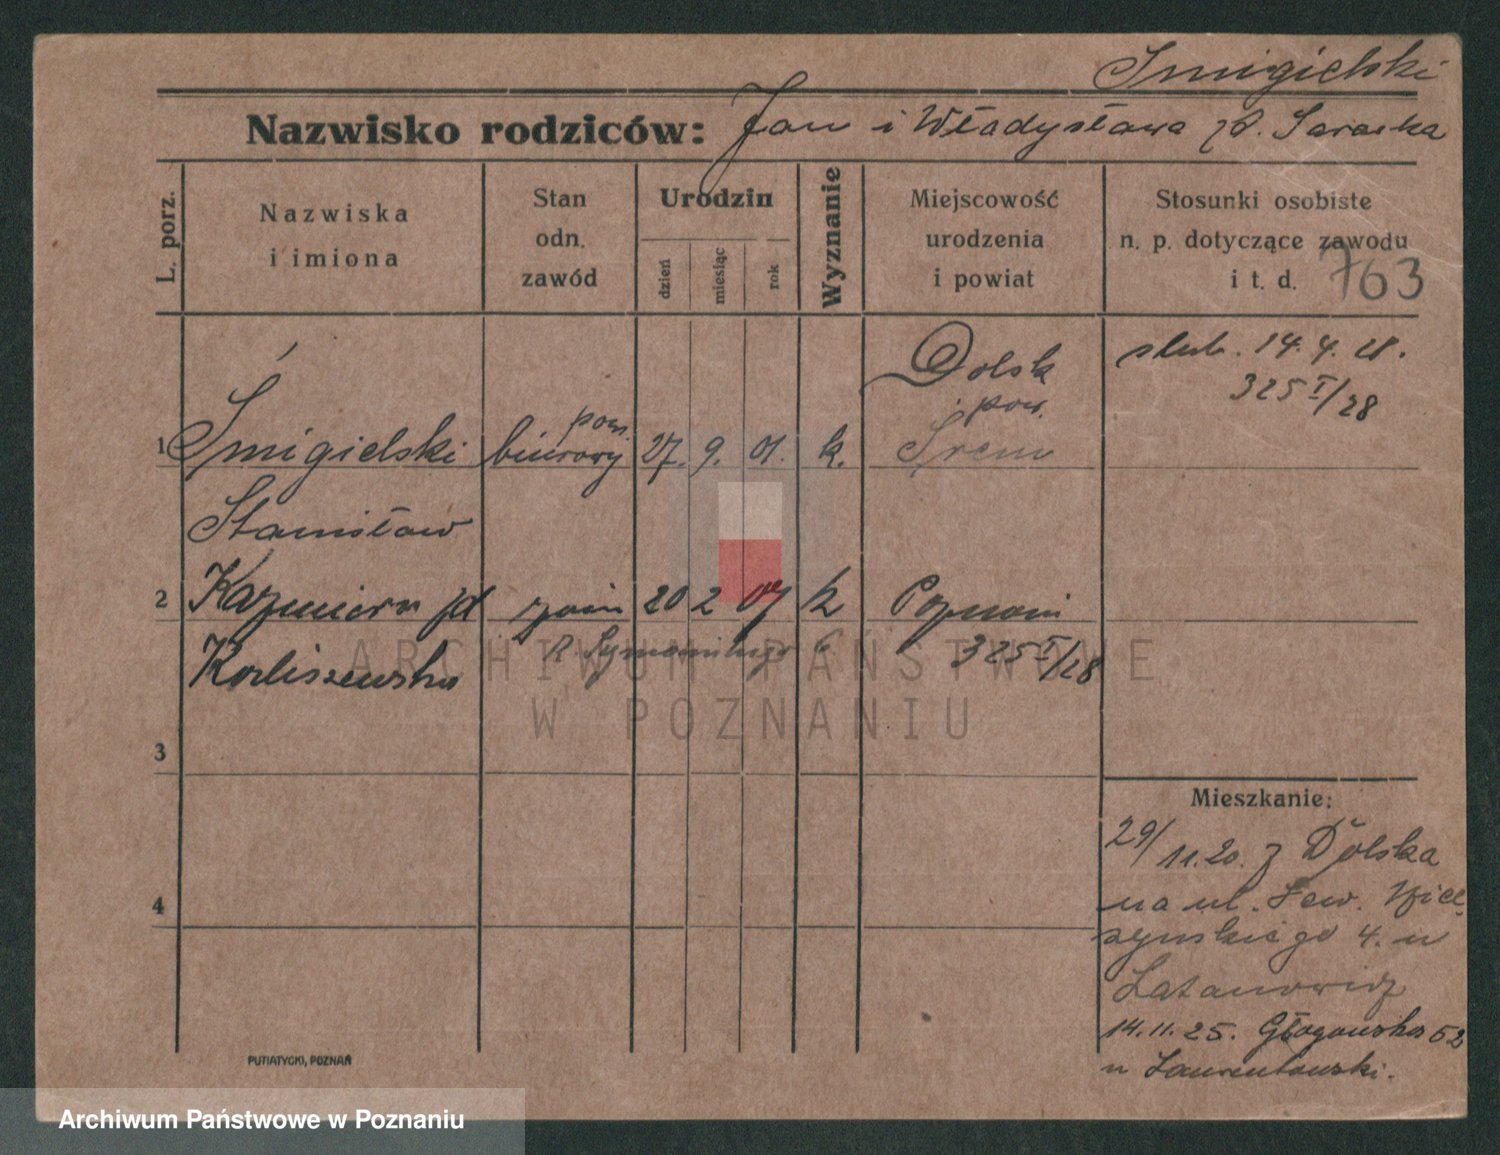 Smigielski
Nazwisko rodziców: Jan i Władysława zd.
L. porz.
Nazwiska
i imiona
Stan
odn.
zawód
Urodzin
dzień
miesiąc
rok
Wyznanie
Miejscowość
urodzenia
i powiat
Stosunki osobiste
n. p. dotyczące zawodu
i t. d.
763
1 Śmigielski
Stanisław
pom.
biurowy
27. 9. 01. k.
Dolsk
pow.
Śrem
ślub. 14. 4. 28.
325 I/28
2 Kazmiera zd
Korliszewska
20 2 07 k
Poznań
325 I/28
3
4
Mieszkanie:
29/11.20. z Dolska
na ul.
4. u
Latanowicz
14.11.25. Głogowska 52
u Laurentowski.
PUTIATYCKI, POZNAŃ
ARCHIWUM PAŃSTWOWE
W POZNANIU
Archiwum Państwowe w Poznaniu